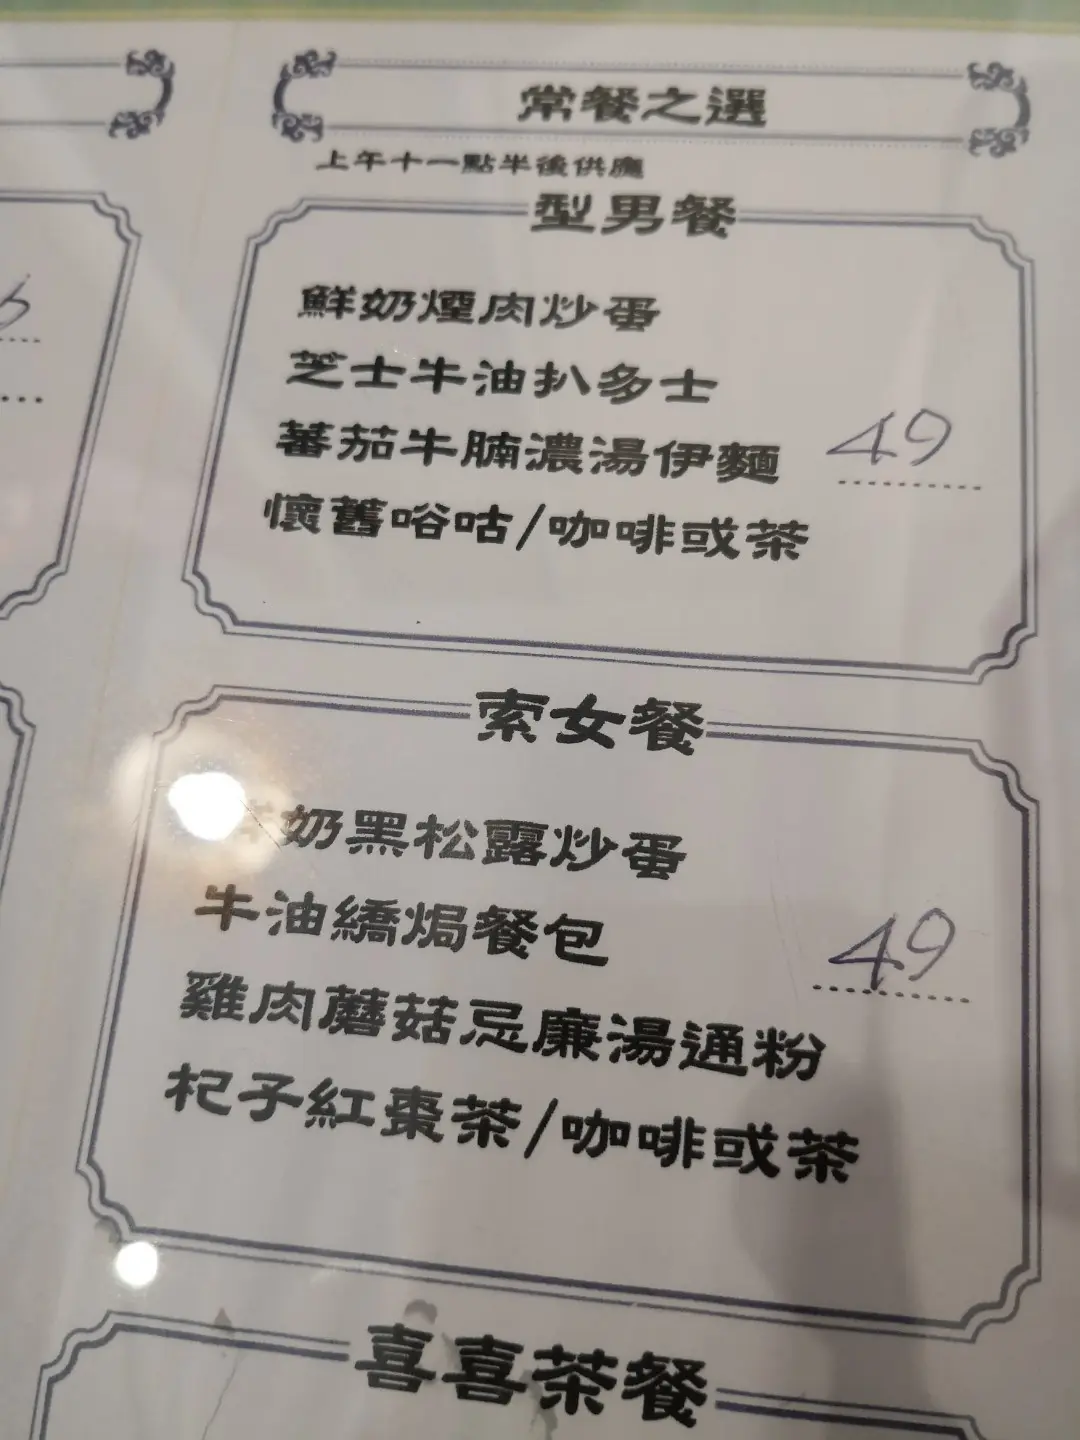 常餐之選
上午十一點半後供應
型男餐
鮮奶煙肉炒蛋
芝士牛油扒多士
蕃茄牛腩濃湯伊麵
49
懷舊唂咕/咖啡或茶
索女餐
鮮奶黑松露炒蛋
牛油繑焗餐包
49
雞肉蘑菇忌廉湯通粉
杞子紅棗茶/咖啡或茶
喜喜茶餐